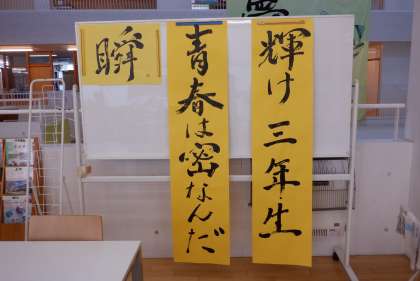 輝け三年生
青春は密なんだ
瞬